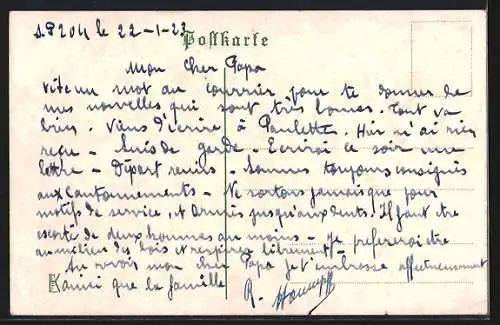 S.P 204 le 22-1-23
Postkarte
Mon Cher Papa
Vite un mot au courrier pour te donner de
mes nouvelles qui sont très bonnes. Tout va
bien. Viens d'écrire à Paulette. Hier n'ai rien
reçu - Suis de garde. Ecrirai ce soir une
lettre - Départ remis. Sommes toujours consignés
aux Cantonnements - Ne sortons jamais que pour
motifs de service, et armés jusqu'aux dents. Il faut être
escorté de deux hommes au moins - Je préférerai être
au milieu des bois et respirer librement
Au revoir mon cher Papa je t'embrasse affectueusement
ainsi que la famille
R.